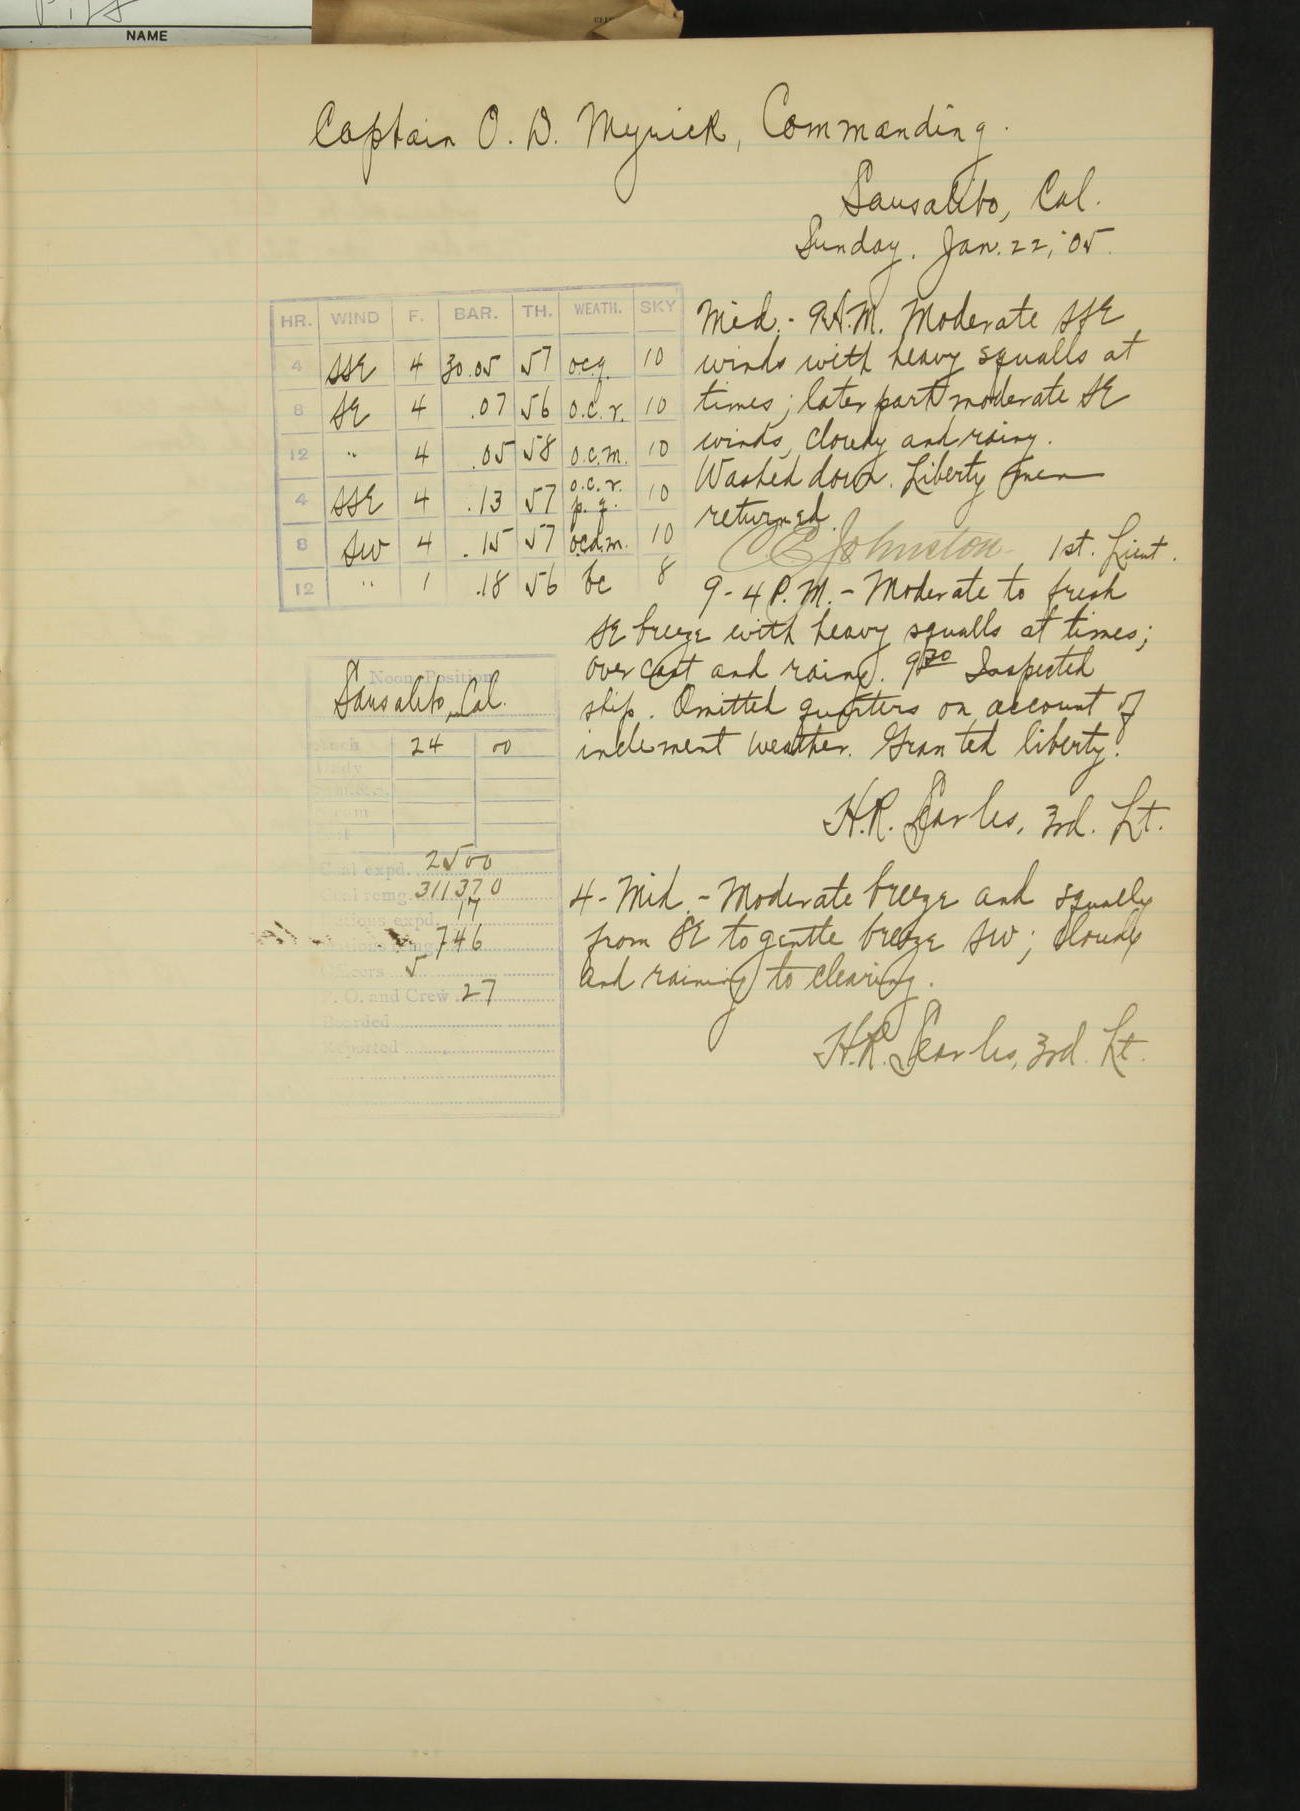 NAME
Captain O. D. Myrick, Commanding.
Sausalito, Cal.
Sunday. Jan. 22, '05.
HR. WIND F. BAR. TH. WEATH. SKY
4 SSE 4 30.05 57 o.c.q. 10
8 SE 4 .07 56 o.c.r. 10
12 " 4 .05 58 o.c.m. 10
4 SSE 4 .13 57 o.c.r. p.q. 10
8 SW 4 .15 57 o.c.d.m. 10
12 " 1 .18 56 bc 8
Noon Position
Sausalito, Cal.
24 00
Coal expd. 2500
Coal remg. 311370
Rations expd. 17
Rations remg. 746
Officers 5
P. O. and Crew 27
Boarded
Reported
Mid. - 9 A.M. Moderate SSE
winds with heavy squalls at
times; later part moderate SE
winds, cloudy and rainy.
Washed down. Liberty men
returned.
C E Johnston 1st. Lieut.
9 - 4 P.M. - Moderate to fresh
SE breeze with heavy squalls at times;
overcast and rainy. 9 30 Inspected
ship. Omitted quarters on account of
inclement weather. Granted liberty.
H.R. Searles, 3rd. Lt.
4 - Mid. - Moderate breeze and squally
from SE to gentle breeze SW; cloudy
and raining to clearing.
H.R. Searles, 3rd. Lt.